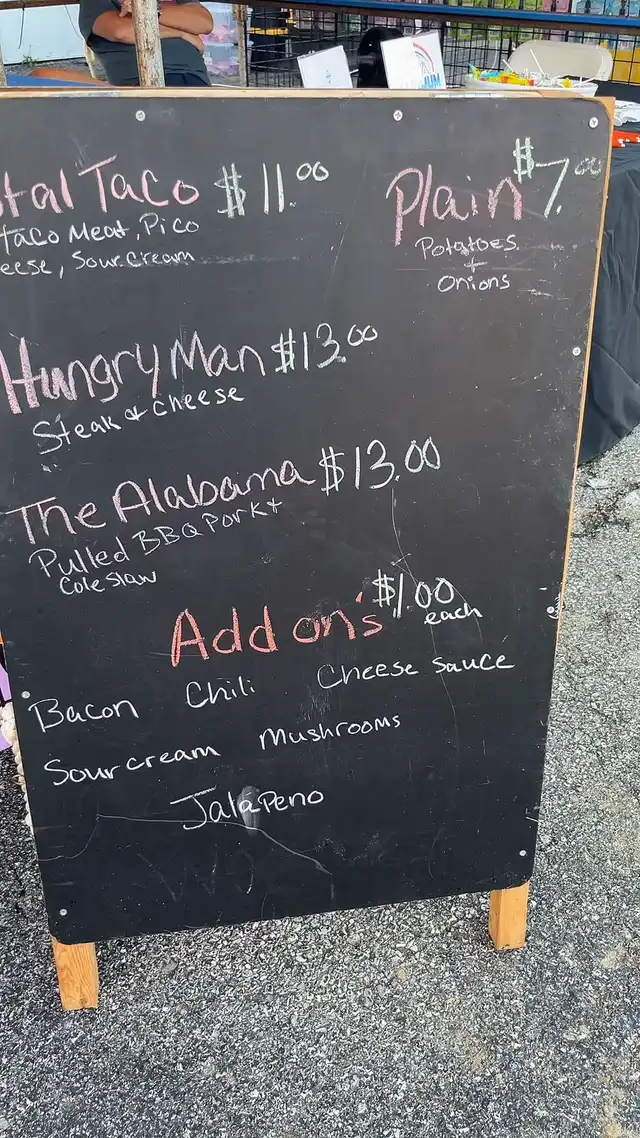 Taco $11.00
Taco Meat, Pico
Sour cream
Plain $7.00
Potatoes
+
Onions
Hungry Man $13.00
Steak & cheese
The Alabama $13.00
Pulled BBQ Pork +
Cole Slaw
Add on's $1.00
each
Bacon Chili Cheese Sauce
Sour cream Mushrooms
Jalapeno